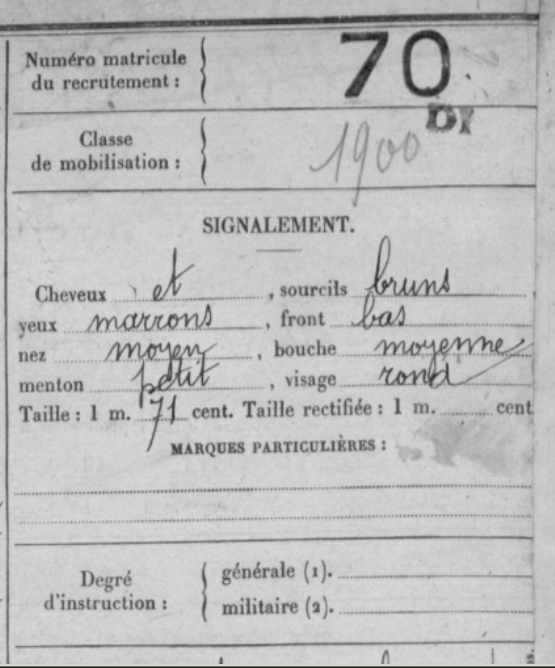 Numéro matricule
du recrutement :
70
DI
Classe
de mobilisation :
1900
SIGNALEMENT.
Cheveux et , sourcils bruns
yeux marrons , front bas
nez moyen , bouche moyenne
menton petit , visage rond
Taille : 1 m. 71 cent. Taille rectifiée : 1 m. cent
MARQUES PARTICULIÈRES :
Degré
d'instruction :
générale (1).
militaire (2).